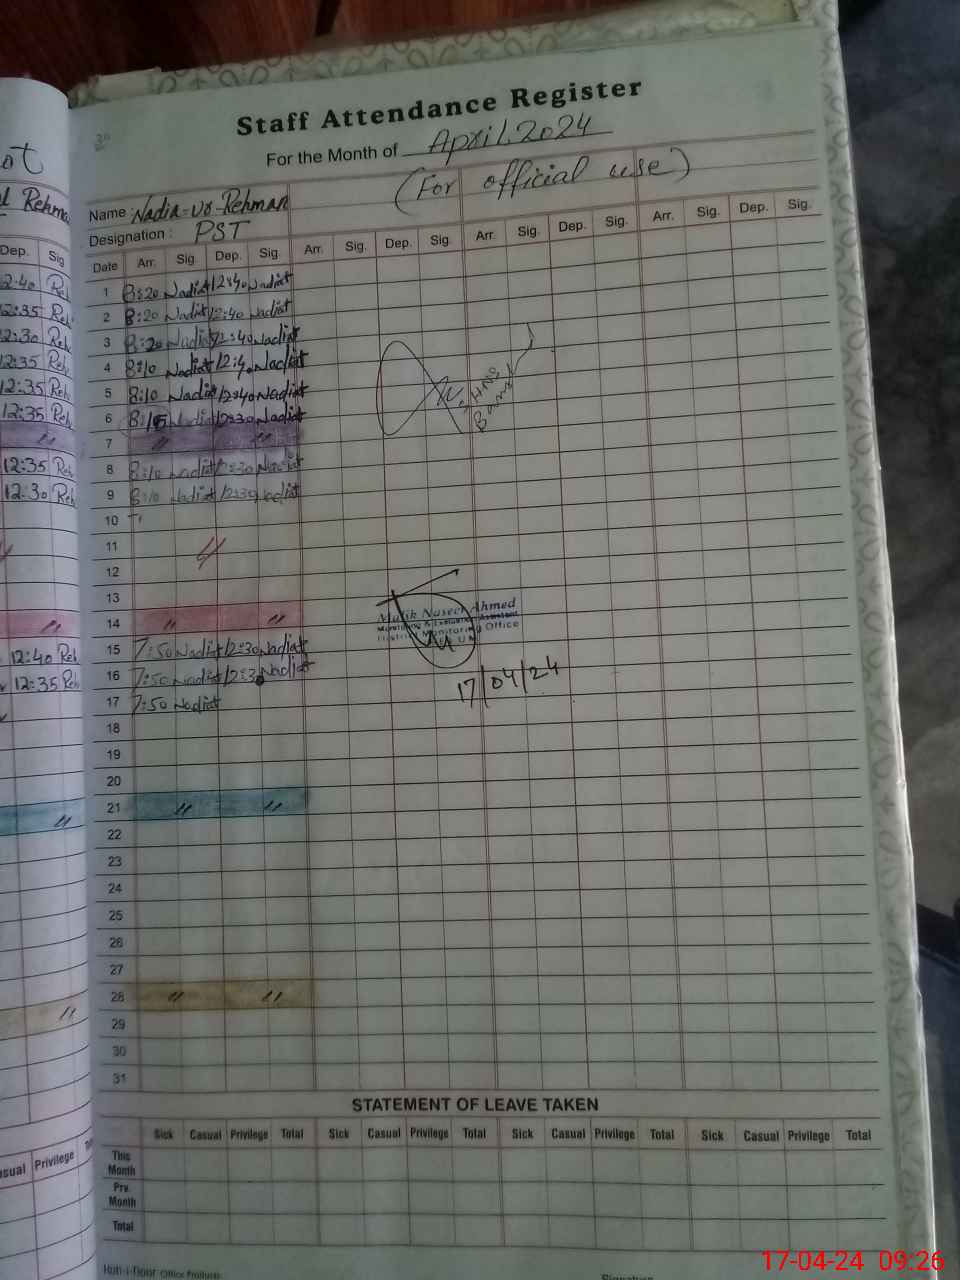 30
Staff Attendance Register
For the Month of April, 2024
(For official use)
Name: Nadia-ur-Rehman
Designation: PST
Date Arr. Sig. Dep. Sig. Arr. Sig. Dep. Sig. Arr. Sig. Dep. Sig. Arr. Sig. Dep. Sig.
1 8:20 Nadia 12:40 Nadia
2 8:20 Nadia 12:40 Nadia
3 8:20 Nadia 12:40 Nadia
4 8:10 Nadia 12:4 Nadia
5 8:10 Nadia 12:40 Nadia
6 8:15 Nadia 12:30 Nadia
7 " "
8 8:10 Nadia 12:30 Nadia
9 8:10 Nadia 12:30 Nadia
10
11 "
12
13
14 " "
Malik Naseer Ahmed
Monitoring & Evaluation Assistant
District Monitoring Office
15 7:50 Nadia 12:30 Nadia
16 7:50 Nadia 12:30 Nadia
17 7:50 Nadia
17/04/24
18
19
20
21 " "
22
23
24
25
26
27
28 " "
29
30
31
STATEMENT OF LEAVE TAKEN
Sick Casual Privilege Total Sick Casual Privilege Total Sick Casual Privilege Total Sick Casual Privilege Total
This Month
Prv. Month
Total
Office Products
Signature
Rehma
Dep. Sig
2:40 Reh
12:35 Reh
12:30 Reh
12:35 Reh
12:35 Reh
12:35 Reh
"
12:35 Reh
12:30 Reh
"
12:40 Reh
12:35 Reh
"
"
Casual Privilege
17-04-24 09:26